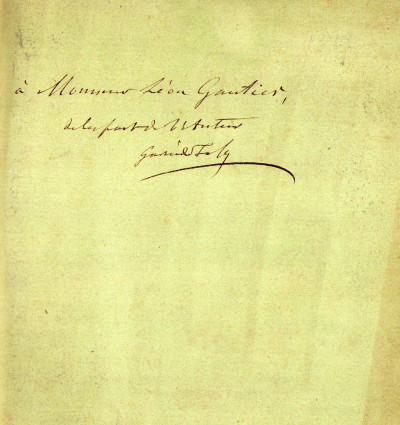 à Monsieur Léon Gautier,
de la part de l'Auteur